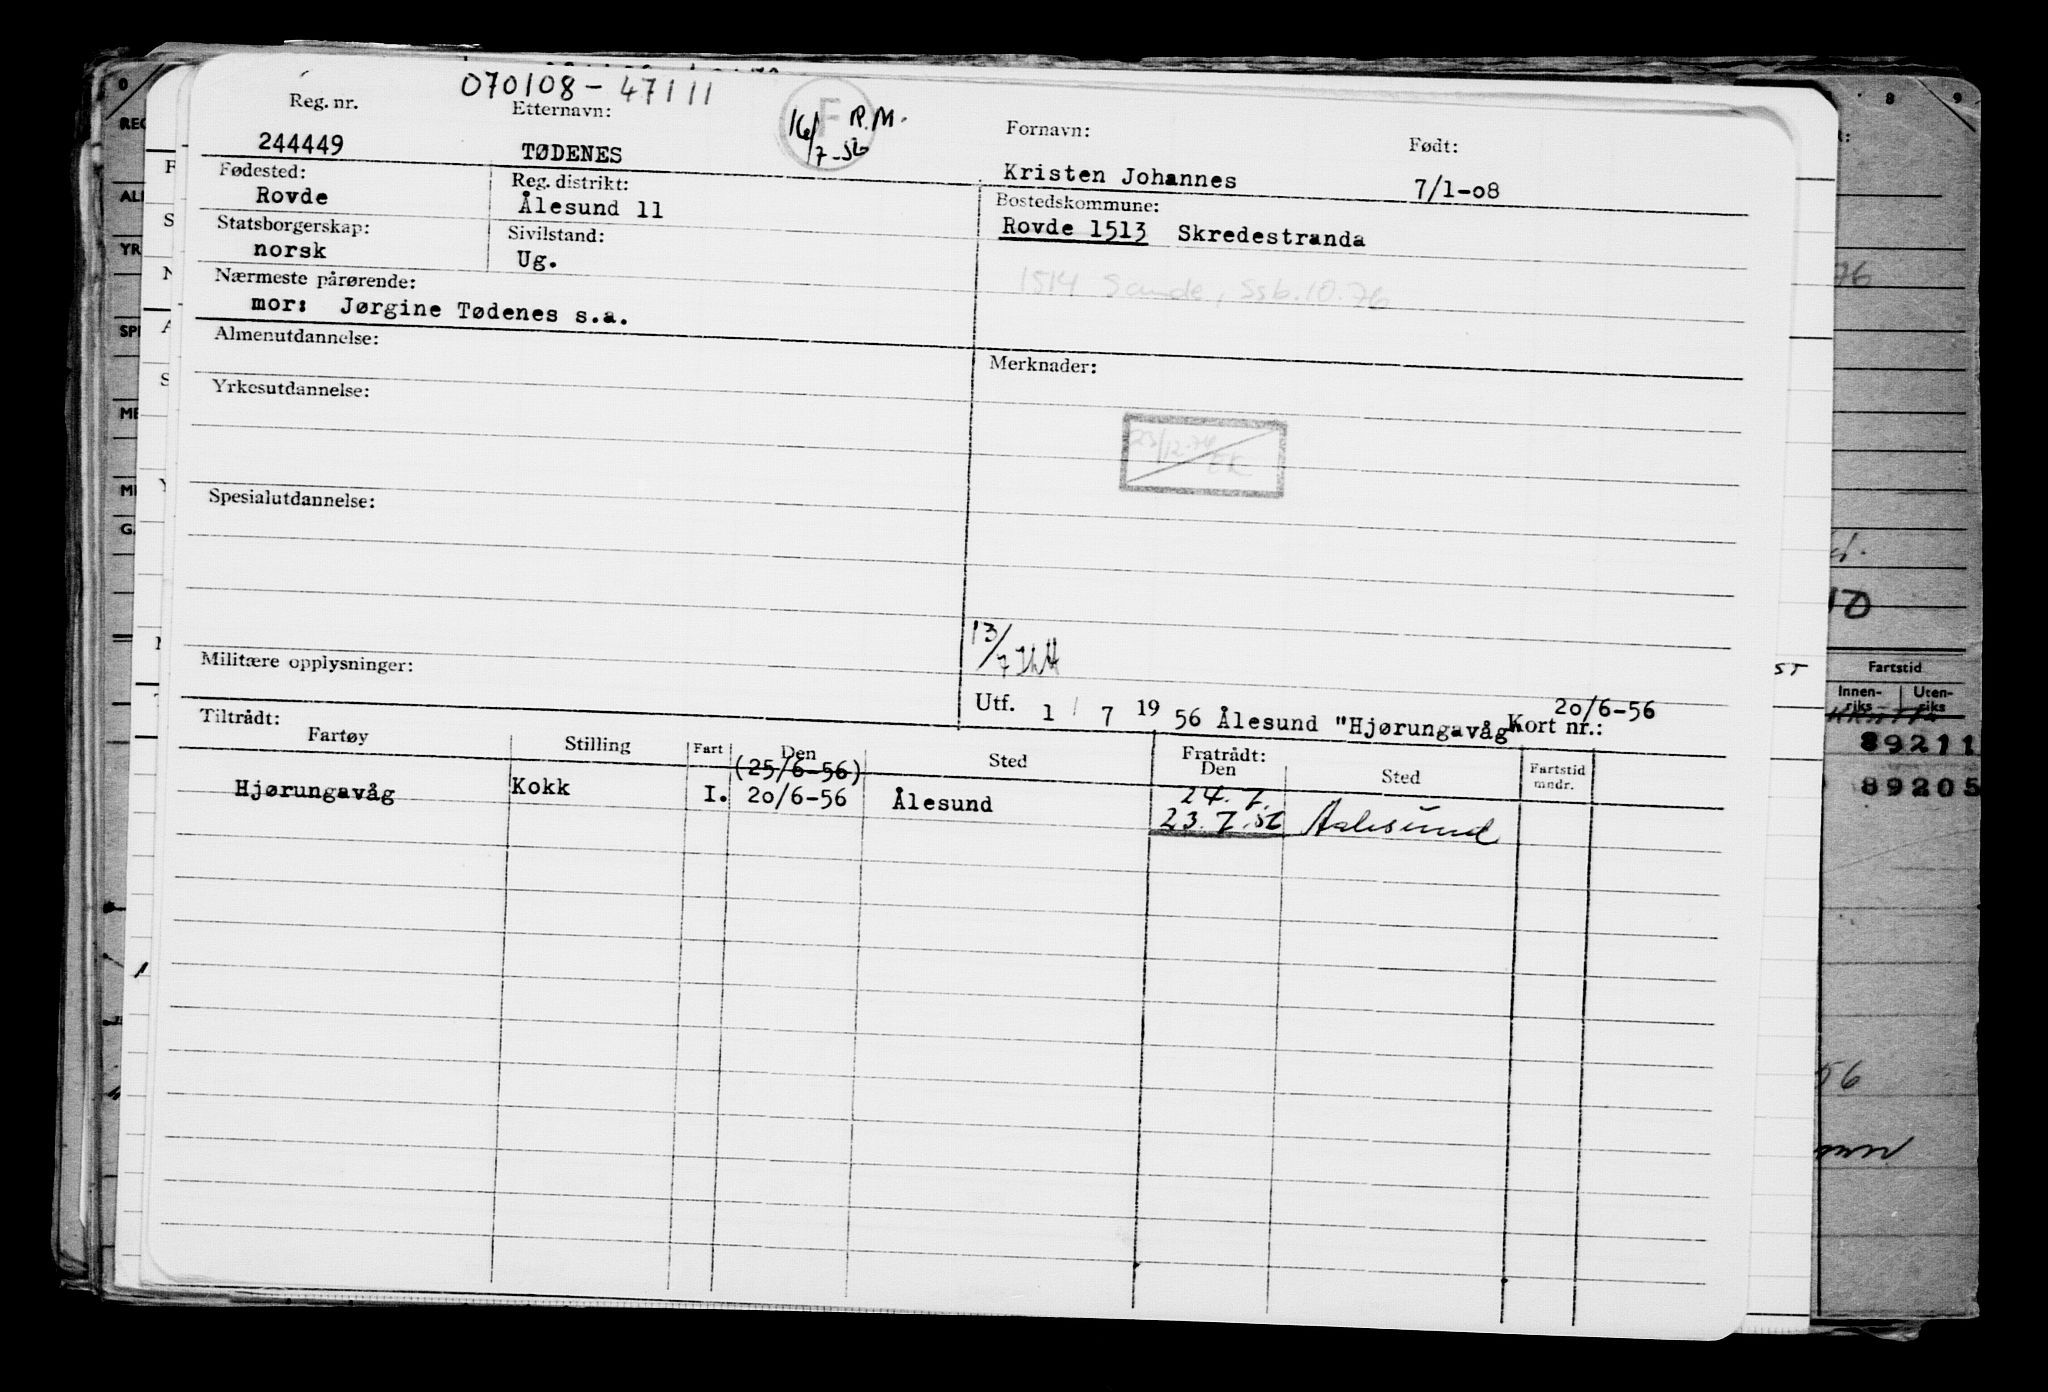 070108-47111
Reg. nr. Etternavn: Fornavn: Født:
16/7-56 R.M.
F
244449 TØDENES Kristen Johannes 7/1-o8
Fødested: Reg. distrikt: Bostedskommune:
Rovde Ålesund 11 Rovde 1513 Skredestranda
Statsborgerskap: Sivilstand:
norsk Ug.
1514 Sande, Ssb.10.76
Nærmeste pårørende:
mor: Jørgine Tødenes s.a.
Almenutdannelse: Merknader:
Yrkesutdannelse:
Spesialutdannelse:
13/7
Militære opplysninger:
Utf. 1 / 7 19 56 Ålesund "Hjørungavåg" Kort nr.: 2o/6-56
Tiltrådt: Fratrådt:
Fartøy Stilling Fart Den Sted Den Sted Fartstid mndr.
(25/6-56)
Hjørungavåg Kokk I. 2o/6-56 Ålesund 24.7.
23.7.56 Aalesund
Fartstid
Innen-riks Uten-riks
89211
89205